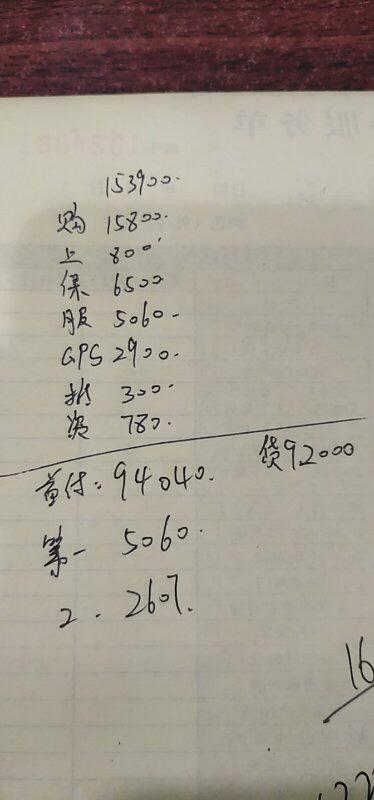 153900.
购 15800.
上 800.
保 6500
服 5060-
GPS 2900.
拆 300.
资 780.
首付: 94040. 贷92000
第一 5060.
2. 2607.
16